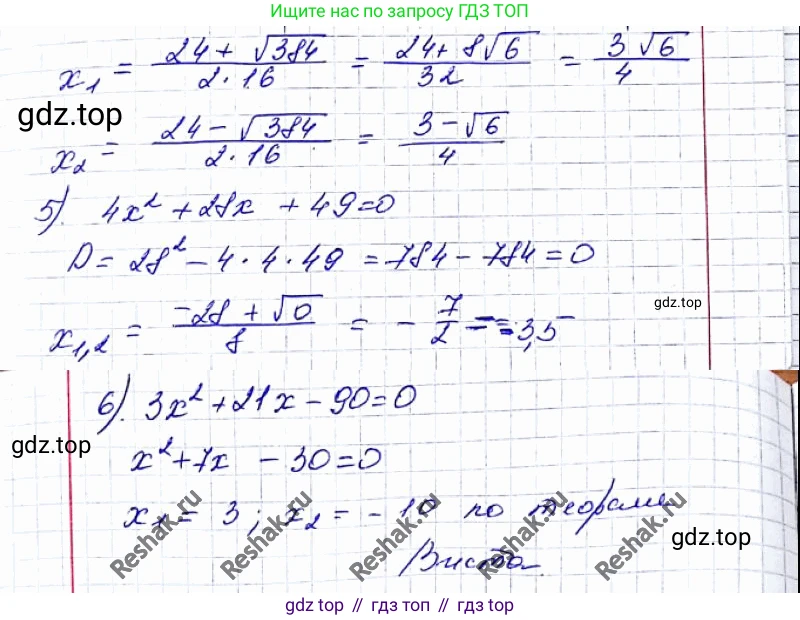 Ищите нас по запросу ГДЗ ТОП
x₁ = (24 + √384)/(2·16) = (24 + 8√6)/32 = (3 √6)/4
gdz.top
x₂ = (24 − √384)/(2·16) = (3 − √6)/4
5). 4x² + 28x + 49 = 0
D = 28² − 4 · 4 · 49 = 784 − 784 = 0
gdz.top
x₁,₂ = (−28 + √0)/8 = − 7/2 = −3,5
6). 3x² + 21x − 90 = 0
gdz.top
x² + 7x − 30 = 0
x₁ = 3 ; x₂ = −10 по теореме
Виета
gdz.top
Reshak.ru Reshak.ru Reshak.ru Reshak.ru Reshak.ru
gdz.top // гдз топ // gdz.top // гдз топ